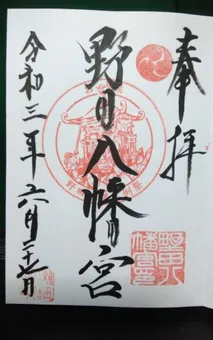 奉拝
野田八幡宮
令和三年六月二十七日
野田八幡宮印